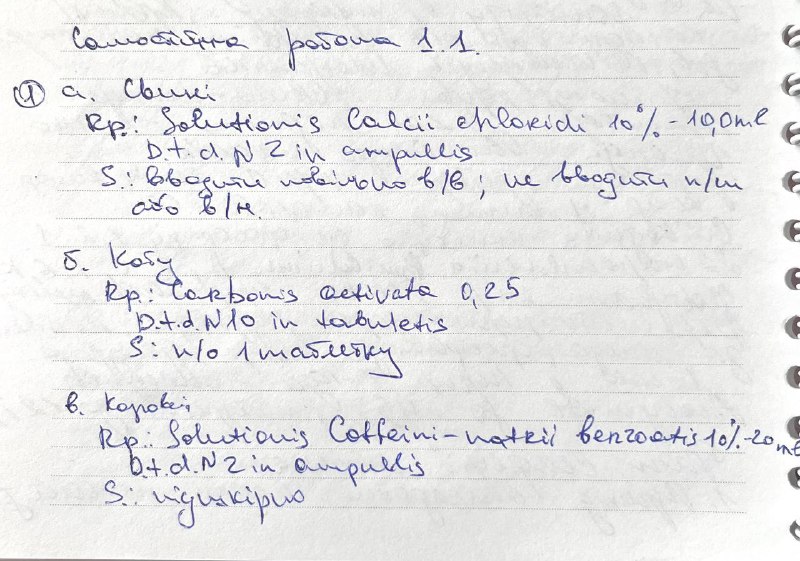 Самостійна робота 1.1.
① а. Свині
Rp.: Solutionis Calcii chloridi 10% - 10,0 ml
D.t.d. N 2 in ampullis
S.: Вводити повільно в/в; не вводити п/ш
або в/м.
б. Коту
Rp.: Carbonis activata 0,25
D.t.d. N 10 in tabuletis
S: п/о 1 таблетку
в. Корові
Rp.: Solutionis Coffeini-natrii benzoatis 10% - 20 ml
D.t.d. N 2 in ampullis
S.: підшкірно